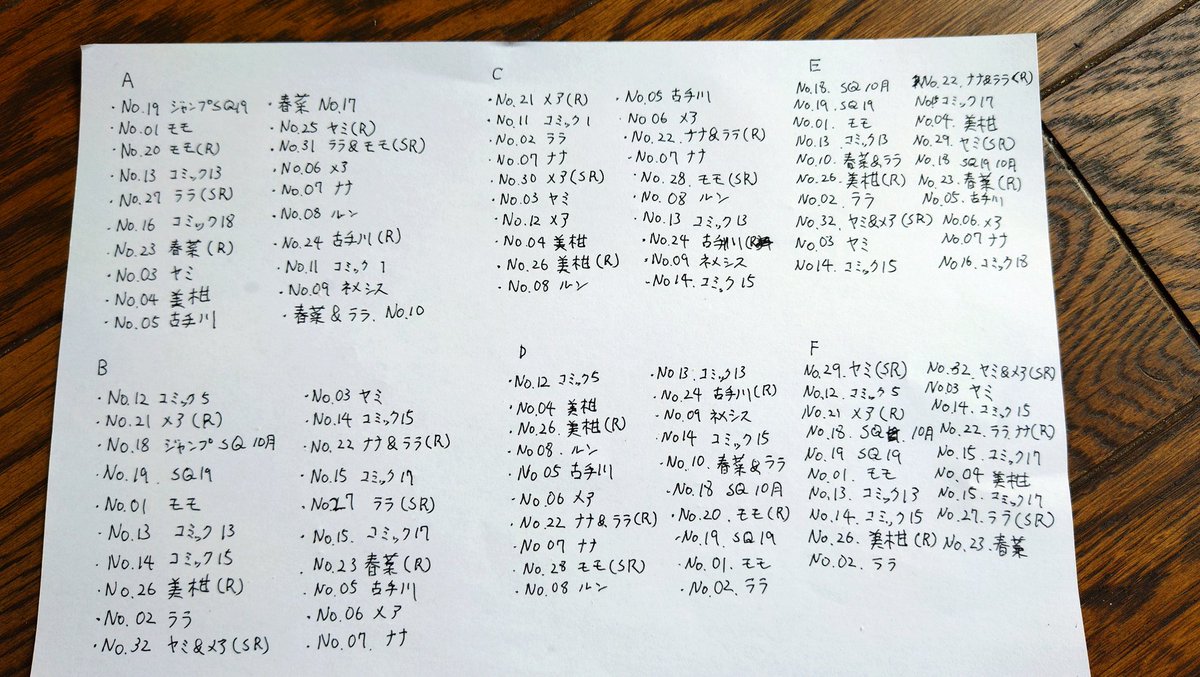 A
・No.19 ジャンプSQ19
・No.01 モモ
・No.20 モモ(R)
・No.13 コミック13
・No.27 ララ(SR)
・No.16 コミック18
・No.23 春菜(R)
・No.03 ヤミ
・No.04 美柑
・No.05 古手川
・春菜 No.17
・No.25 ヤミ(R)
・No.31 ララ&モモ(SR)
・No.06 メア
・No.07 ナナ
・No.08 ルン
・No.24 古手川(R)
・No.11 コミック1
・No.09 ネメシス
・春菜&ララ. No.10
B
・No.12 コミック5
・No.21 メア(R)
・No.18 ジャンプSQ10月
・No.19. SQ19
・No.01 モモ
・No.13 コミック13
・No.14 コミック15
・No.26 美柑(R)
・No.02 ララ
・No.32 ヤミ&メア(SR)
・No.03 ヤミ
・No.14 コミック15
・No.22 ナナ&ララ(R)
・No.15 コミック17
・No27 ララ(SR)
・No.15. コミック17
・No.23 春菜(R)
・No.05 古手川
・No.06 メア
・No.07. ナナ
C
・No.21 メア(R)
・No.11 コミック1
・No.02 ララ
・No.07 ナナ
・No.30 メア(SR)
・No.03 ヤミ
・No.12 メア
・No.04 美柑
・No.26 美柑(R)
・No.08 ルン
・No.05 古手川
・No 06 メア
・No.22. ナナ&ララ(R)
・No.07 ナナ
・No.28. モモ(SR)
・No.08 ルン
・No.13 コミック13
・No.24 古手川(R)
・No.09 ネメシス
・No14. コミック15
D
・No.12 コミック5
・No.04 美柑
・No.26. 美柑(R)
・No 08. ルン
・No 05 古手川
・No.06 メア
・No.22 ナナ&ララ(R)
・No 07 ナナ
・No.28 モモ(SR)
・No.08 ルン
・No 13. コミック13
・No.24 古手川(R)
・No.09 ネメシス
・No14 コミック15
・No.10. 春菜&ララ
・No.18 SQ10月
・No.20. モモ(R)
・No.19. SQ19
・No.01. モモ
・No.02. ララ
E
No.18. SQ10月
No.19. SQ19
No.01. モモ
No.13 コミック13
No.10. 春菜&ララ
No.26. 美柑(R)
No.02. ララ
No.32. ヤミ&メア(SR)
No.03 ヤミ
No14. コミック15
No.22. ナナ&ララ(R)
No15 コミック17
No.04. 美柑
No.29. ヤミ(SR)
No.18 SQ19 10月
No.23. 春菜(R)
No.05. 古手川
No.06. メア
No.07 ナナ
No.16. コミック18
F
No.29. ヤミ(SR)
No.12. コミック5
No.21 メア(R)
No.18. SQ 10月
No.19 SQ19
No.01 モモ
No.13. コミック13
No.14. コミック15
No.26. 美柑(R)
No.02. ララ
No.32. ヤミ&メア(SR)
No.03 ヤミ
No.14. コミック15
No.22. ララナナ(R)
No.15. コミック17
No.04 美柑
No.15. コミック17
No.27. ララ(SR)
No.23. 春菜